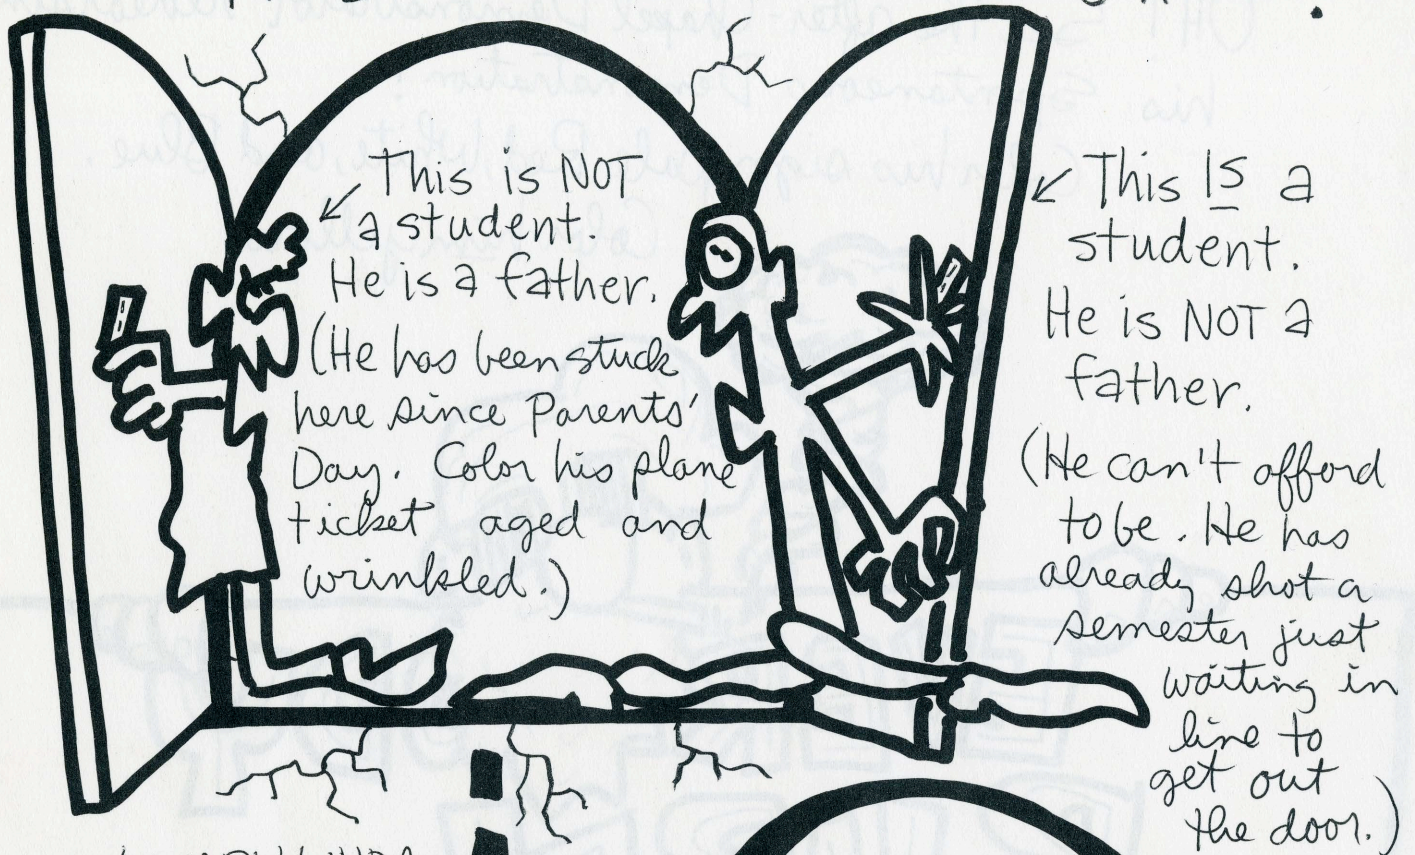 This is NOT
a student.
He is a father.
(He has been stuck
here since Parents'
Day. Color his plane
ticket aged and
wrinkled.)
This IS a
student.
He is NOT a
father.
(He can't afford
to be. He has
already shot a
semester just
waiting in
line to
get out
the door.)